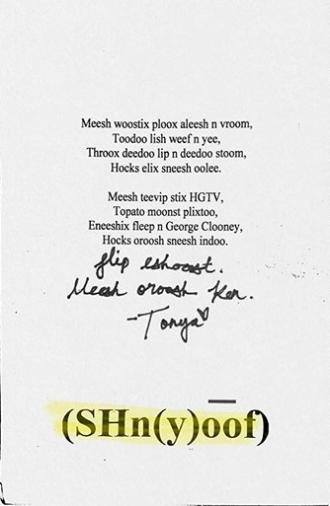 Meesh woostix ploox aleesh n vroom,
Toodoo lish weef n yee,
Throox deedoo lip n deedoo stoom,
Hocks elix sneesh oolee.
Meesh teevip stix HGTV,
Topato moonst plixtoo,
Eneeshix fleep n George Clooney,
Hocks oroosh sneesh indoo.
flip eshoost.
Meesh oroosh Ken.
-Tonya
(SHn(y)o͞of)